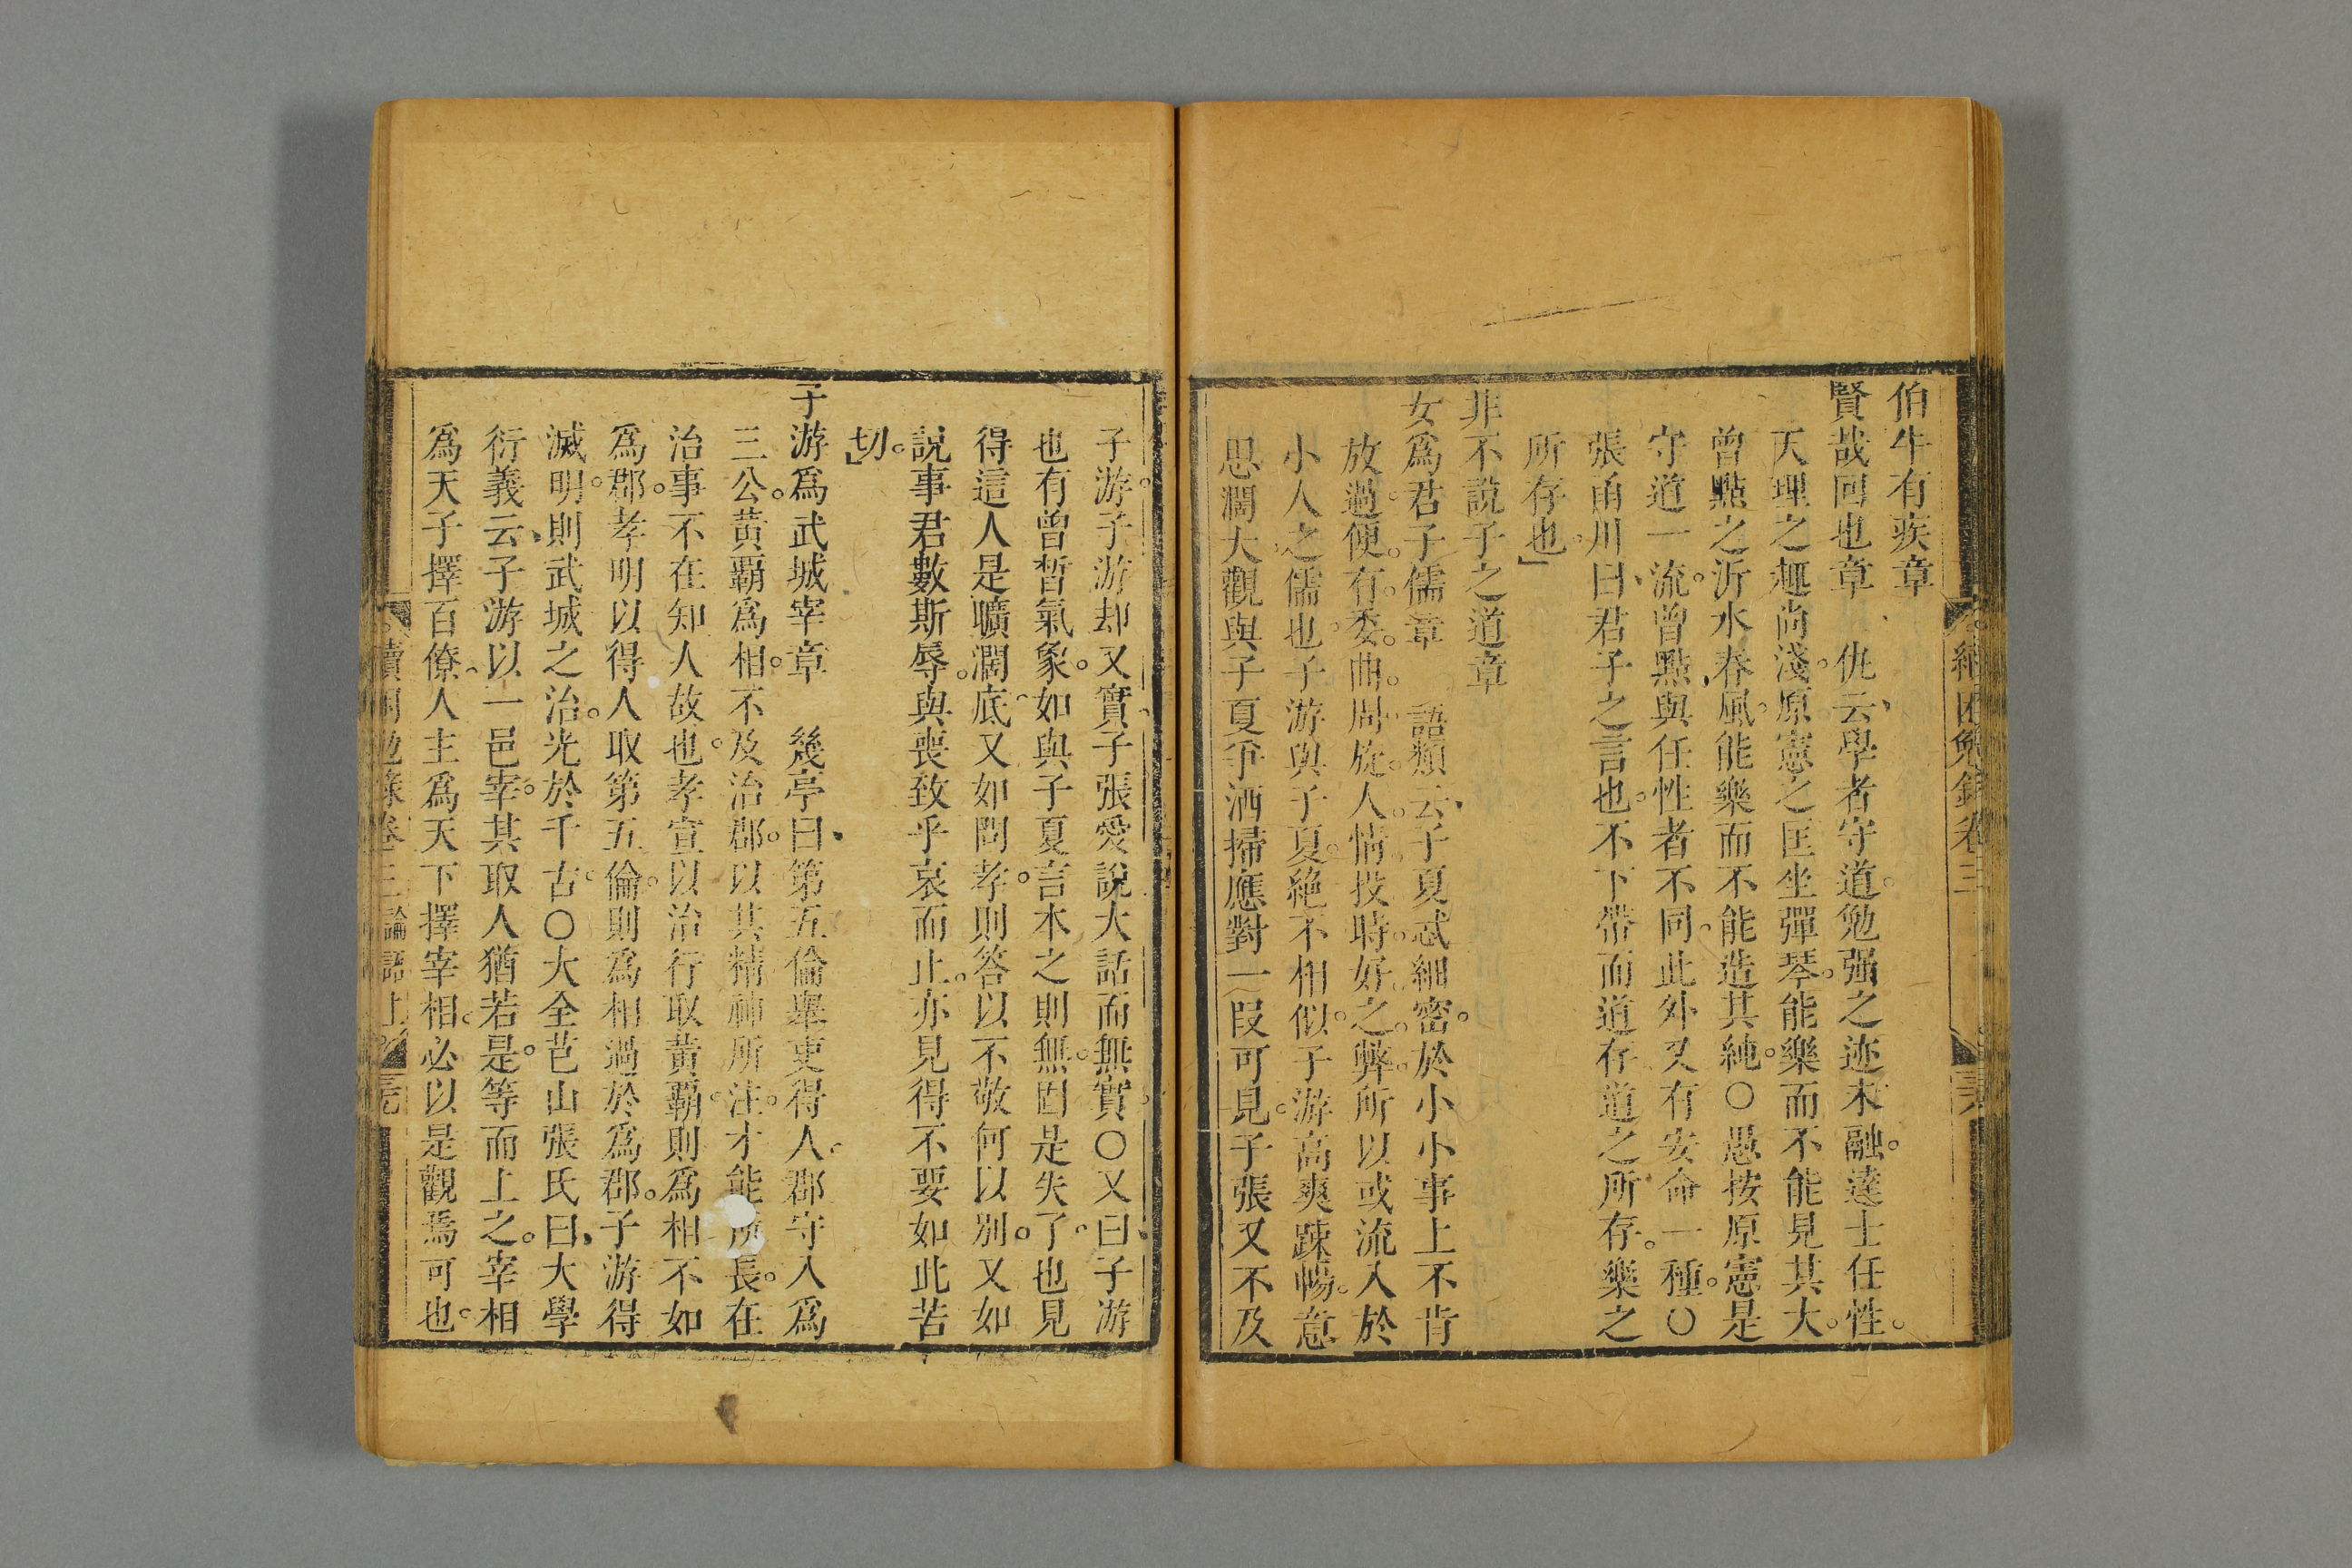 續困勉錄卷三
三六
伯牛有疾章
賢哉回也章　仇云、學者守道。勉强之迹未融。達士任性。
天理之趣尚淺。原憲之匡坐彈琴。能樂而不能見其大。
曾點之沂水春風。能樂而不能造其純。○愚按原憲是
守道一流。曾點、與任性者不同。此外又有安命一種。○
張甬川曰、君子之言也。不下帶而道存。道之所存。樂之
所存也。」
非不說子之道章
女爲君子儒章　語類云、子夏忒細密。於小小事上不肯
放過。便。有。委。曲。周。旋。人。情。投。時。好。之。弊。所以或流入於
小人之儒也。子游與子夏。絶不相似。子游高爽踈暢。意
思濶大。觀與子夏爭洒掃應對一叚可見。子張又不及
子游。子游却又實、子張愛說大話而無實。○又曰、子游
也有曾晳氣象。如與子夏言本之則無。固是失了。也見
得這人是曠濶底。又如問孝。則答以不敬何以別。又如
說事君數斯辱。與喪致乎哀而止。亦見得不要如此苦
切。」
子游爲武城宰章　幾亭曰、第五倫舉吏得人。郡守入爲
三公。黃覇爲相。不及治郡。以其精神所注。才能所長。在
治事不在知人故也。孝宣以治行取黃覇。則爲相不如
爲郡。孝明以得人取第五倫。則爲相過於爲郡。子游得
滅明。則武城之治。光於千古。○大全芑山張氏曰、大學
衍義云、子游以一邑宰。其取人猶若是。等而上之。宰相
爲天子擇百僚、人主爲天下擇宰相。必以是觀焉可也。
續困勉錄卷三 論語上
三七